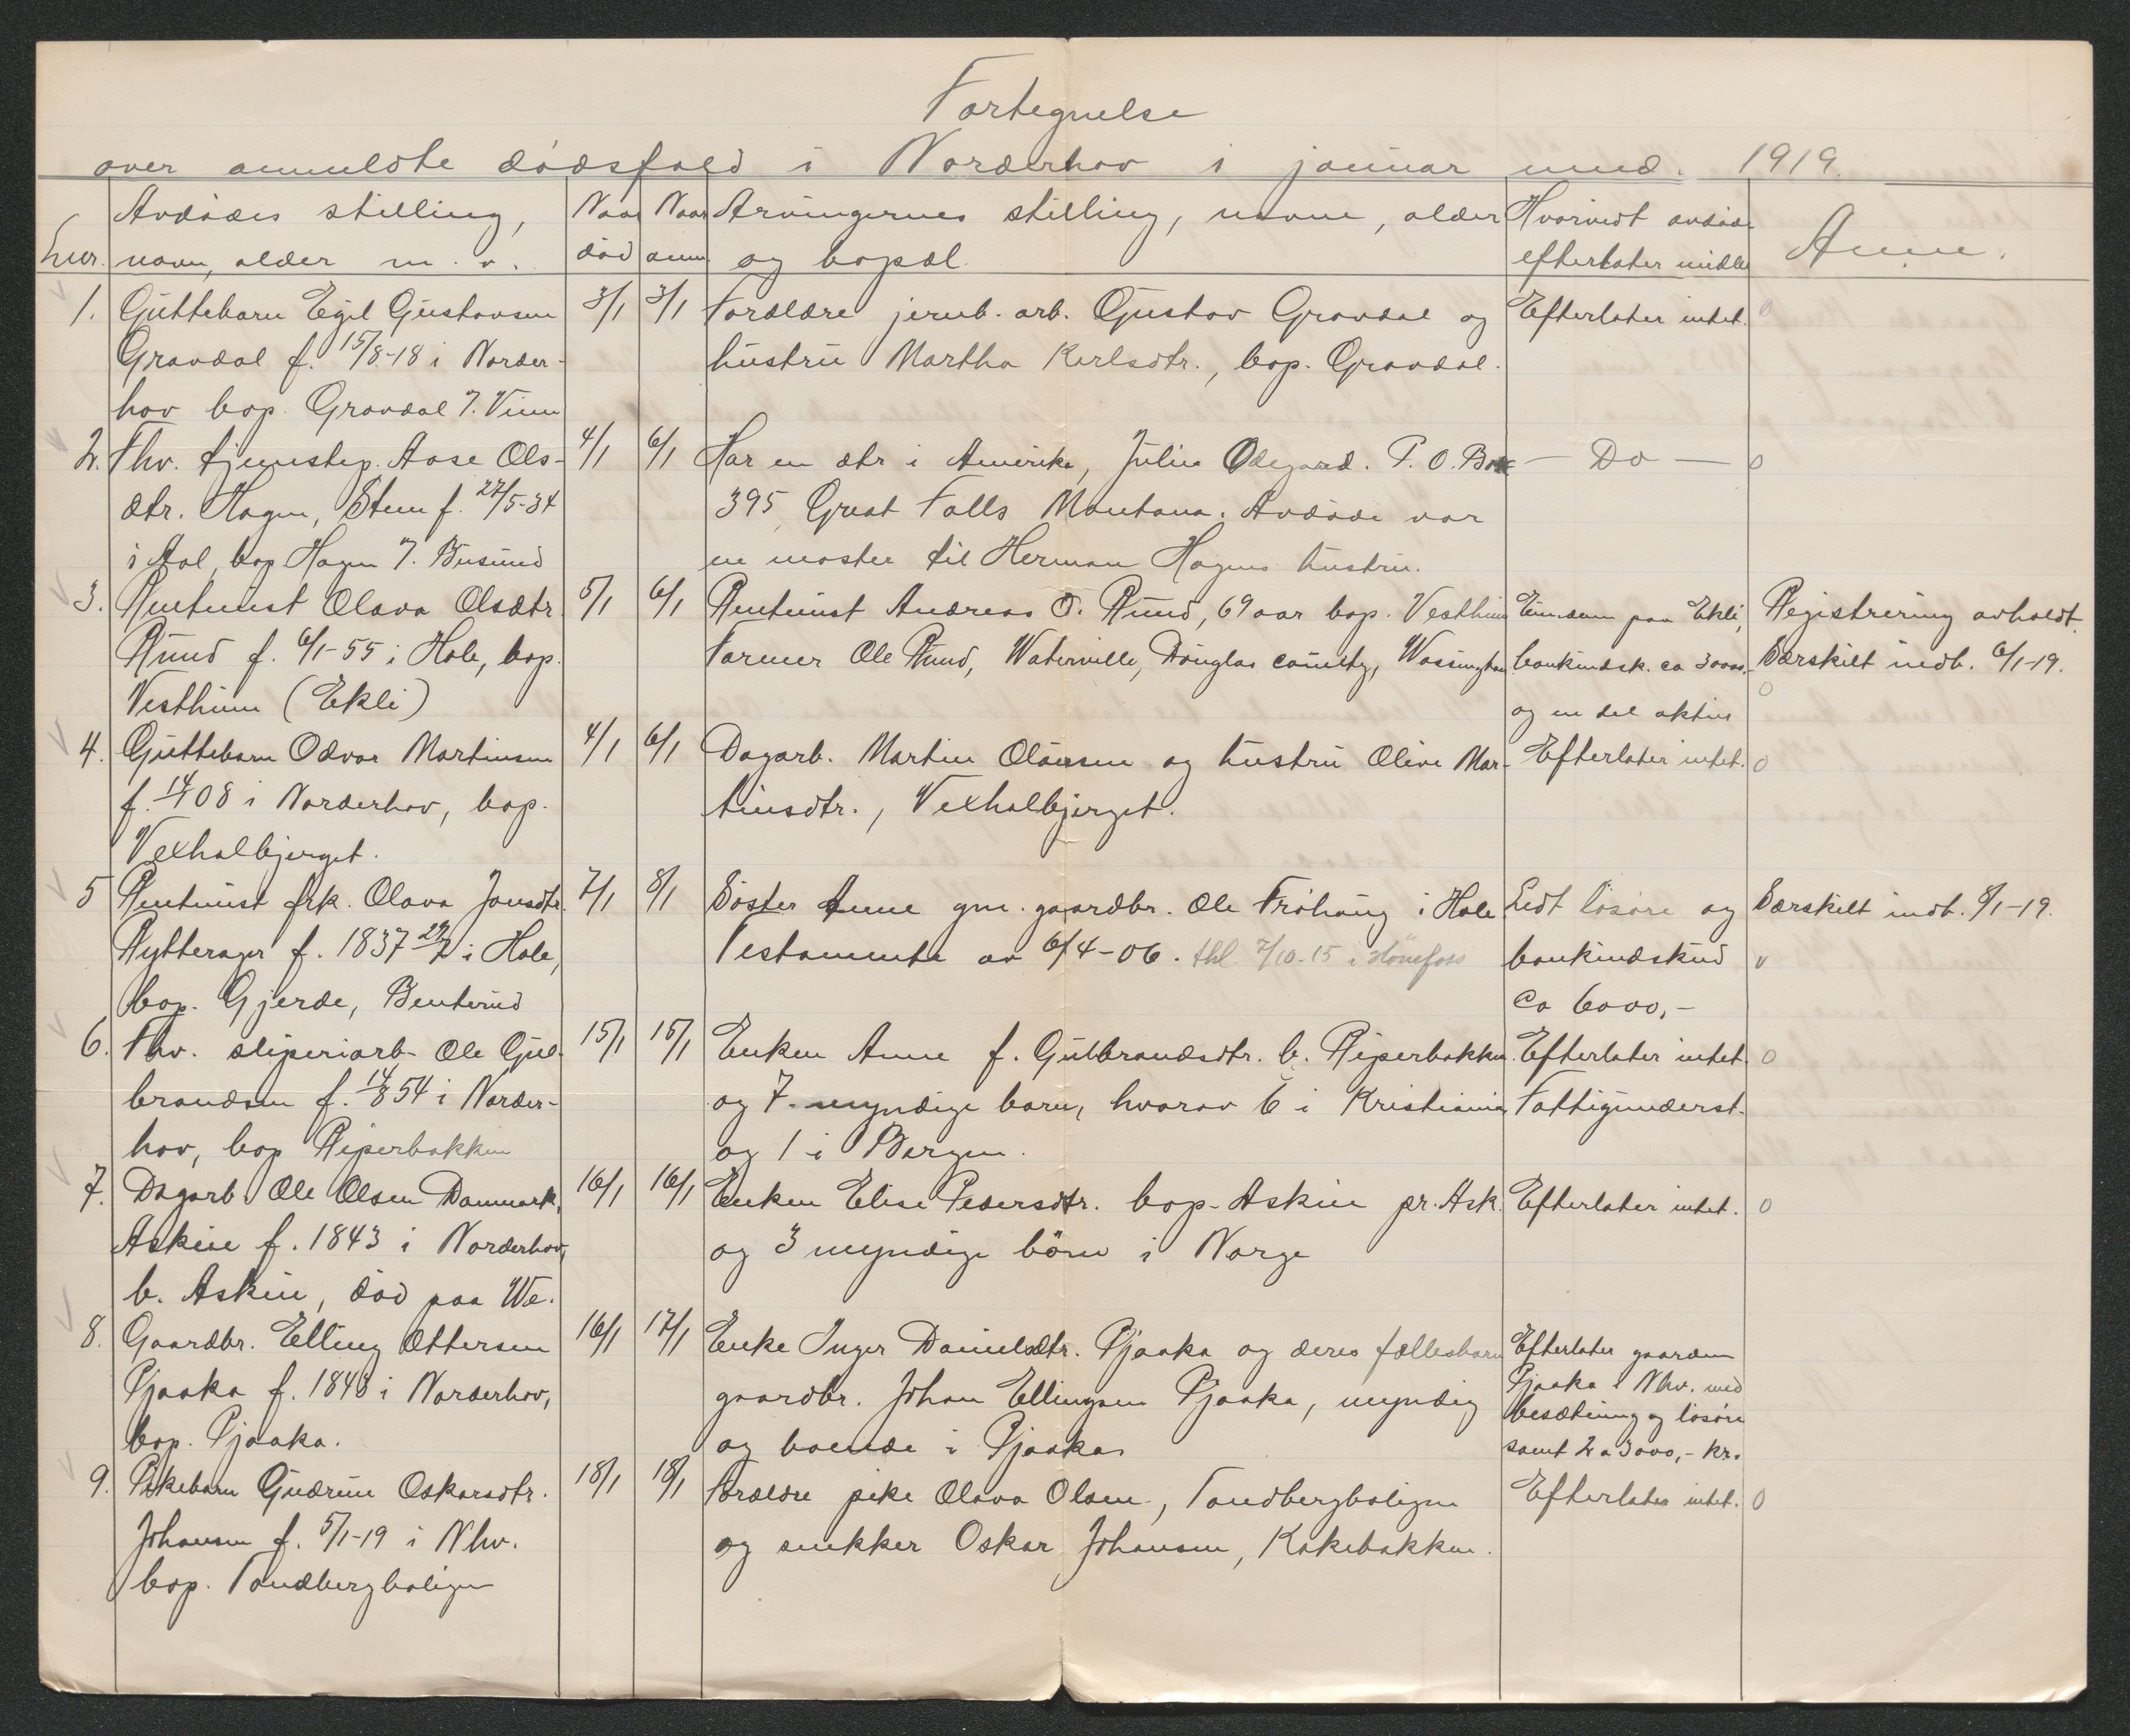 Fortegnelse
over anmeldte dödsfald i Norderhov i januar mnd. 1919.
Lnr. Avdödes stilling, navn, alder m. v.
Naar död
Naar anm.
Arvingernes stilling, navne, alder og bopæl
Hvorvidt avdöde efterlater midler
Anm.
1. Guttebarn Egil Gustavsen 3/1 3/1 Forældre jernb. arb. Gustav Gravdal og Efterlater intet. 0
Gravdal f. 15/8-18 i Norder- hustru Martha Karlsdtr., bop. Gravdal.
hov bop. Gravdal 7. Vinn
2. Fhv. tjenestep. Aase Ols- 4/1 6/1 Har en dtr i Amerika, Julia Odegard. P. O. Box — Do — 0
dtr. Hagen, Steen f. 27/5-34 395 Great Falls Montana. Avdöde var
i Aal, bop Hagen 7. Busund en moster til Herman Hagens hustru.
3. Rentenist Olava Olsdtr. 5/1 6/1 Rentenist Andreas O. Rund, 69 aar bop. Vesthinn Eiendom paa Ekli, Registrering avholdt.
Rund f. 6/1-55 i Hole, bop. Farmer Ole Rund, Waterville, Douglas county, Wassington bankindsk. ca 3000.- Særskilt indb. 6/1-19.
Vesthinn (Ekli) og en del aktier 0
4. Guttebarn Odvar Martinsen 4/1 6/1 Dagarb. Martin Olausen og hustru Oline Mar- Efterlater intet. 0
f. 14/1 08 i Norderhov, bop. tinsdtr., Vexhalbjerget.
Vexhalbjerget.
5 Rentenist frk. Olava Jonsdtr. 7/1 8/1 Söster Anne gm. gaardbr. Ole Fröhaug i Hole Lidt lösöre og Særskilt indb. 8/1-19.
Rytterager f. 1837 29/7 i Hole, Testamente av 6/4-06. thl. 7/10-15 i Hönefoss bankindskud v
bop. Gjerde, Benterud ca 6000,-
6. Fhv. sliperiarb. Ole Gul- 15/1 15/1 Enken Anne f. Gulbrandsdtr. b. Piperbakken. Efterlater intet. 0
brandsen f. 14/8 54 i Norder- og 7 myndige barn, hvorav 6 i Kristiania Fattigunderst.
hov, bop Piperbakken og 1 i Bergen.
7. Dagarb. Ole Olsen Danmark, 16/1 16/1 Enken Elise Pedersdtr. bop. Askin pr. Ask. Efterlater intet. 0
Askin f. 1843 i Norderhov, og 3 myndige börn i Norge
b. Askin, död paa We.
8. Gaardbr. Elling Ottersen 16/1 17/1 Enke Inger Danielsdtr. Pjaaka og deres fællesbarn Efterlater gaarden
Pjaaka f. 1843 i Norderhov, gaardbr. Johan Ellingsen Pjaaka, myndig Pjaaka i Nhv. med
bop. Pjaaka. og boende i Pjaaka. besætning og lösöre
samt 2 a 3000,- kr.
9. Pikebarn Gudrun Oskarsdtr. 18/1 18/1 Forældre pike Olava Olsen, Tandbergboligen Efterlater intet. 0
Johansen f. 5/1-19 i Nhv. og snekker Oskar Johansen, Kakebakken.
bop. Tandbergboligen